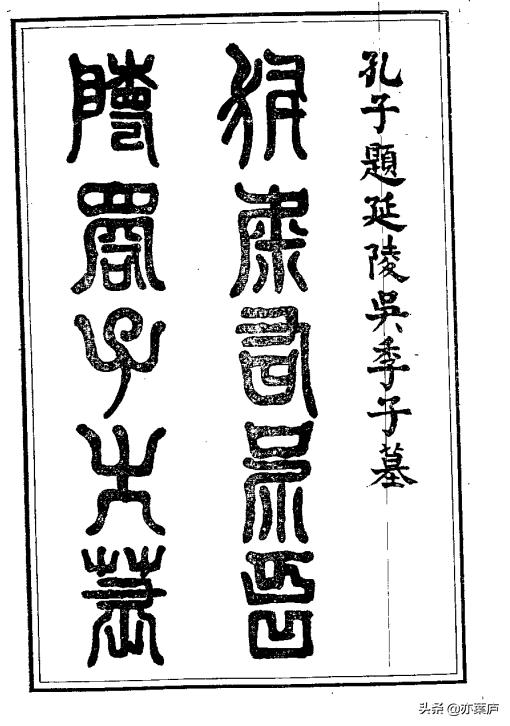 孔子題延陵吳季子墓
有吳延
陵君子之墓
头条 @亦葉庐